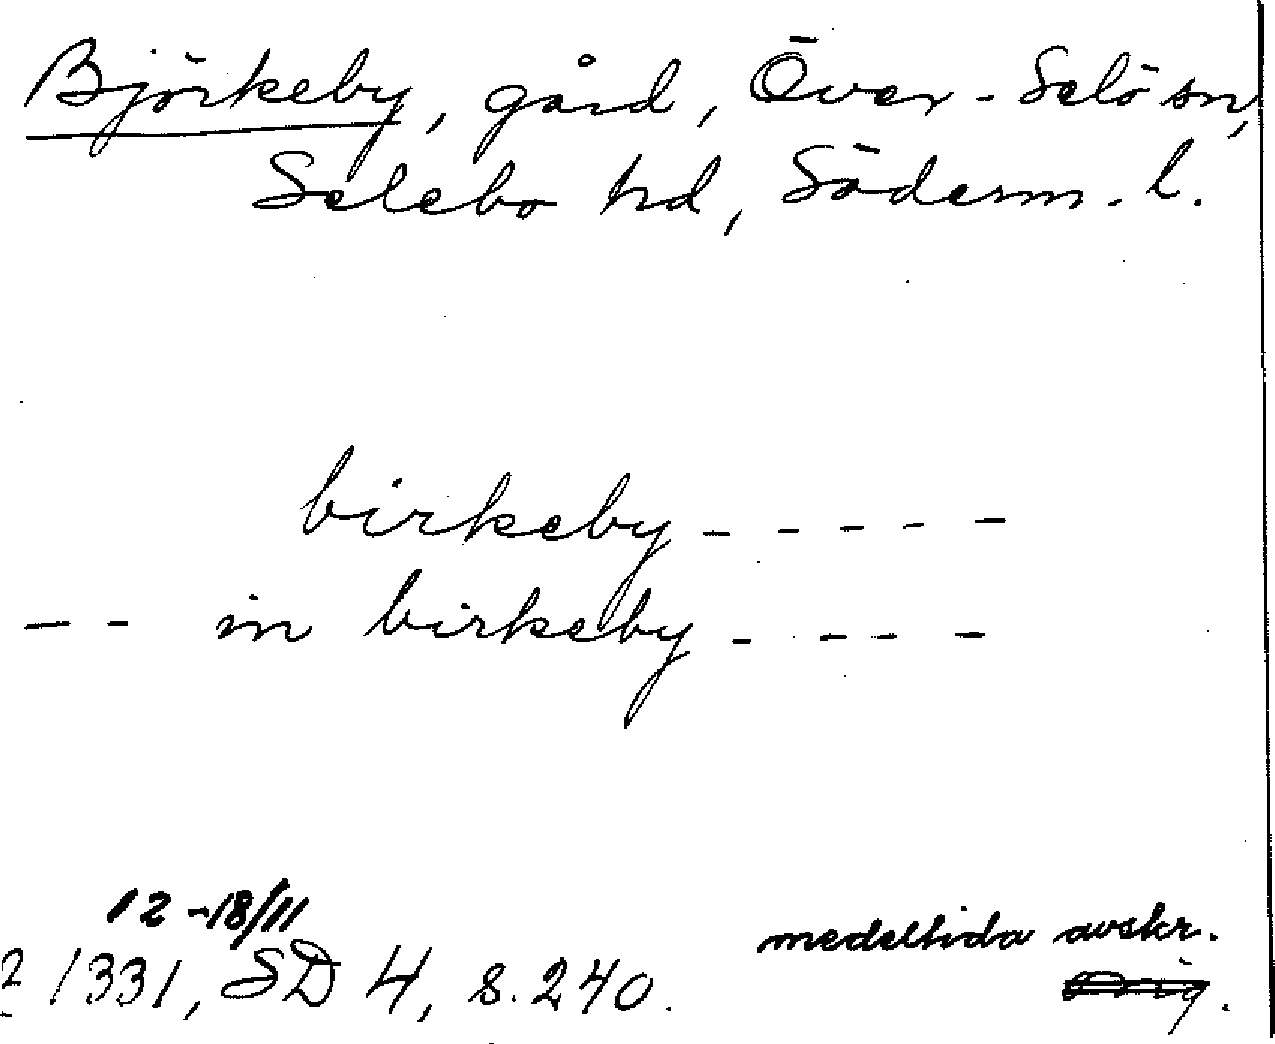 Björkeby, gård, Över-Selö sn,
Selebo hd, Söderm. l.
birkeby - - - - -
- - in birkeby - - - -
12-18/11
1331, SD 4, s. 240.
medeltida avskr.
Orig.